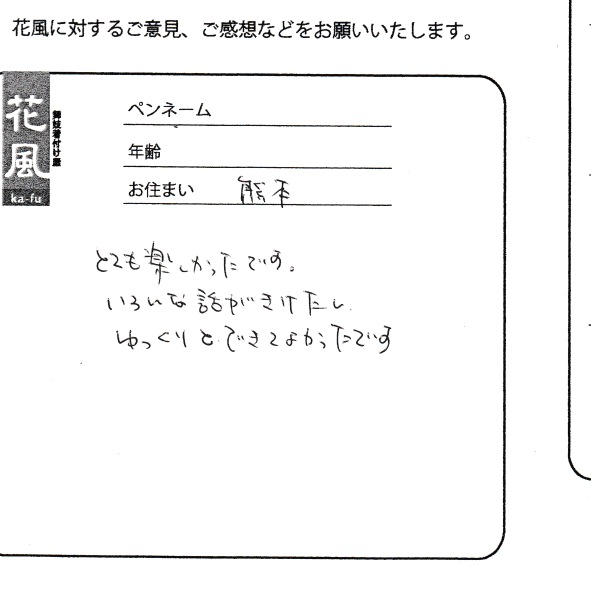 花風に対するご意見、ご感想などをお願いいたします。
花風
舞妓着付け屋
ka-fu
ペンネーム
年齢
お住まい 熊本
とても楽しかったです。
いろいな話がきけたし
ゆっくりとできてよかったです